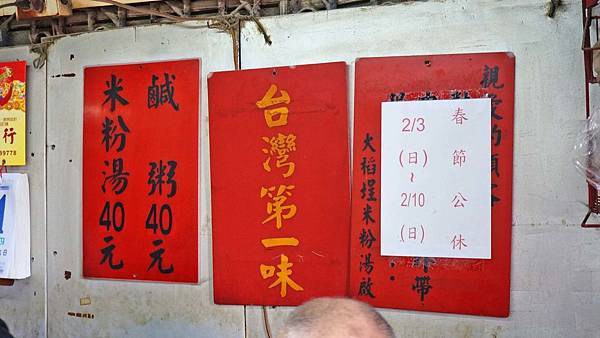 鹹粥40元
米粉湯40元
台灣第一味
親愛的顧客
春節公休
2/3
(日)
~
2/10
(日)
大稻埕米粉湯啟
帶
行
89778
1
日